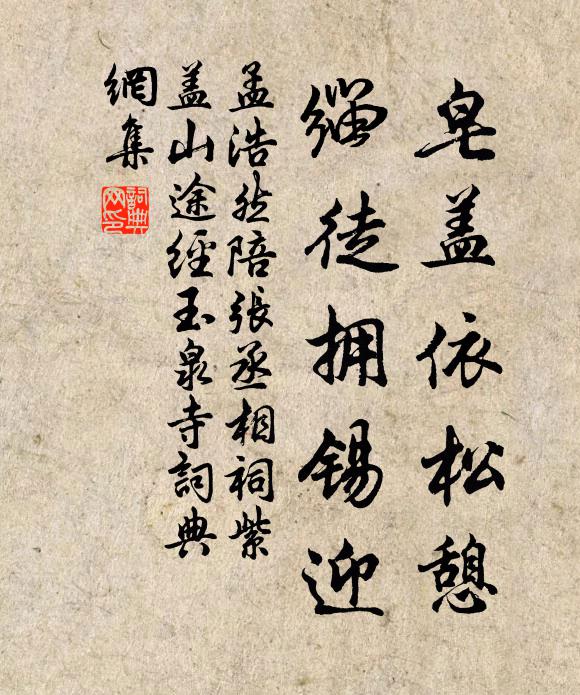 皂盖依松憩
缁徒拥锡迎
孟浩然陪張丞相祠紫
盖山途經玉泉寺詞典
網集
詞典
网印